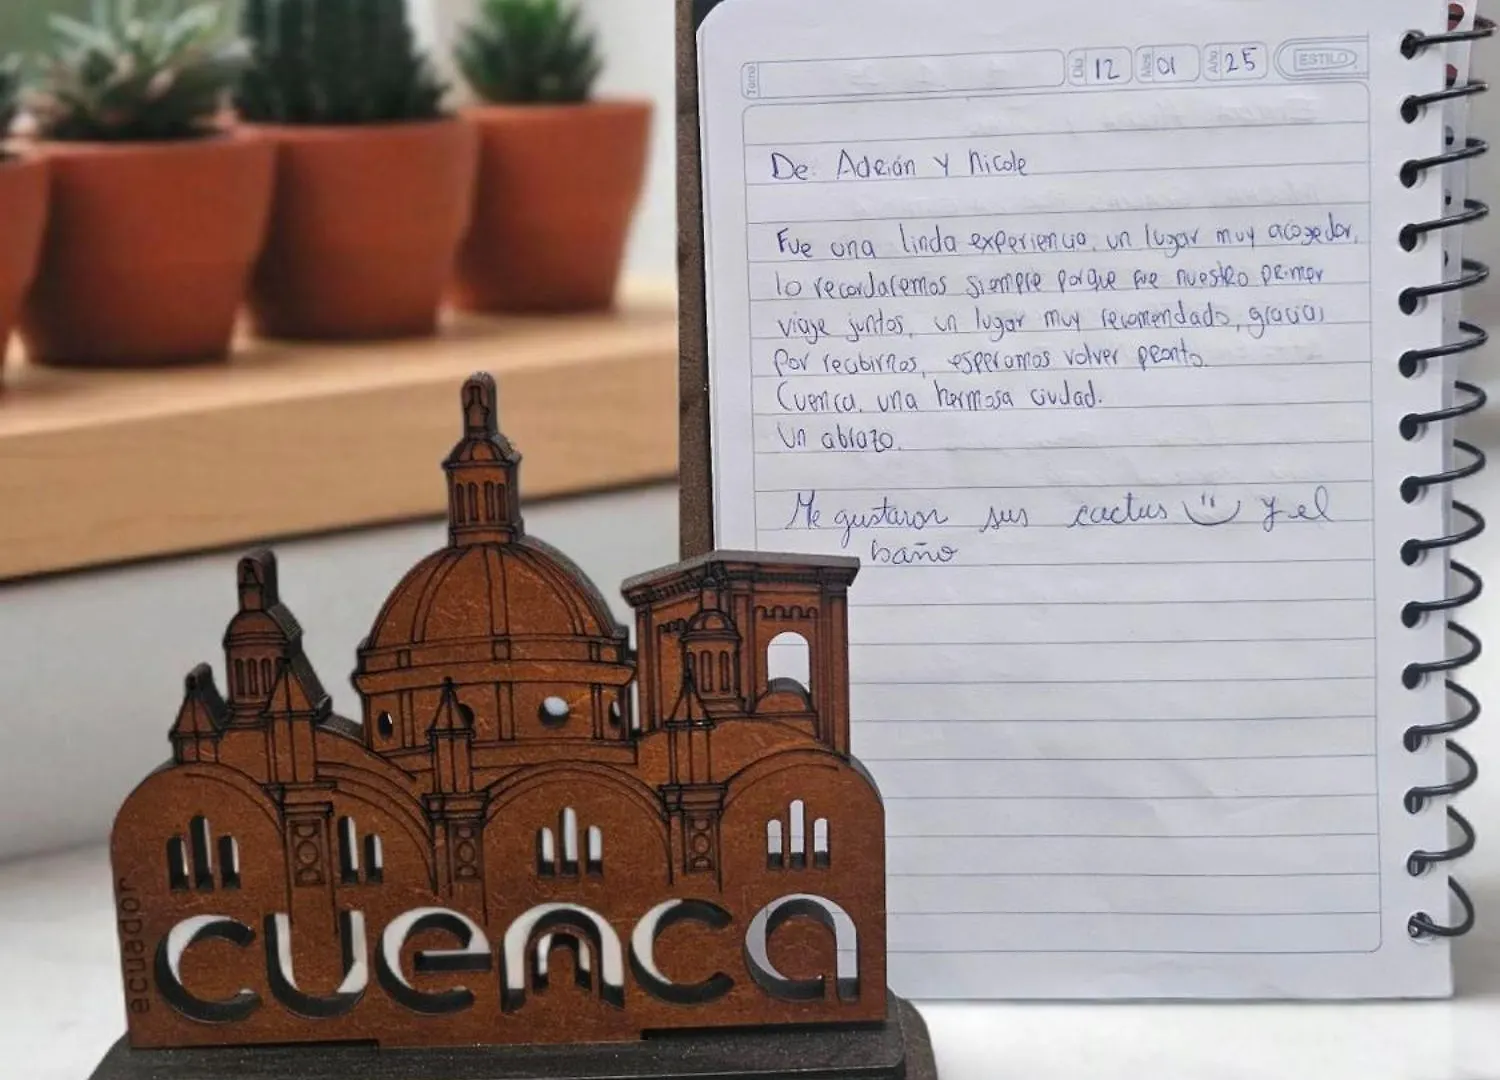 Tema
Día 12 Mes 01 Año 25 ESTILO
De: Adrián y Nicole
Fue una linda experiencia, un lugar muy acogedor,
lo recordaremos siempre porque fue nuestro primer
viaje juntos, un lugar muy recomendado, gracias
por recibirnos, esperamos volver pronto.
Cuenca, una hermosa ciudad.
Un abrazo.
Me gustaron sus cactus y el
baño
ecuador
cuenca